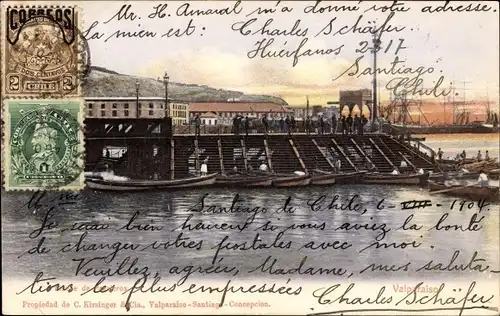 CORREOS
2
CHILE
1
Mr. H. Amaral m'a donné votre adresse.
la mien est: Charles Schäfer
Huérfanos 2317
Santiago
Chili.
Santiago de Chile, 6 1904
Mme
Je serai bien heureux si vous avez la bonté
de changer votres postales avec moi.
Veuillez, agréer, Madame, mes saluta-
tions le plus empressées
Charles Schäfer
Valparaiso
Propiedad de C. Kirsinger & Cia., Valparaiso-Santiago-Concepcion.